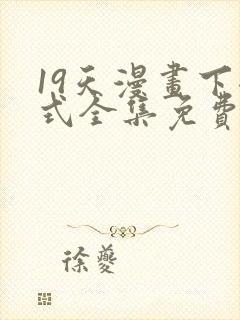 19天漫畫下
式全集免費
徐夔